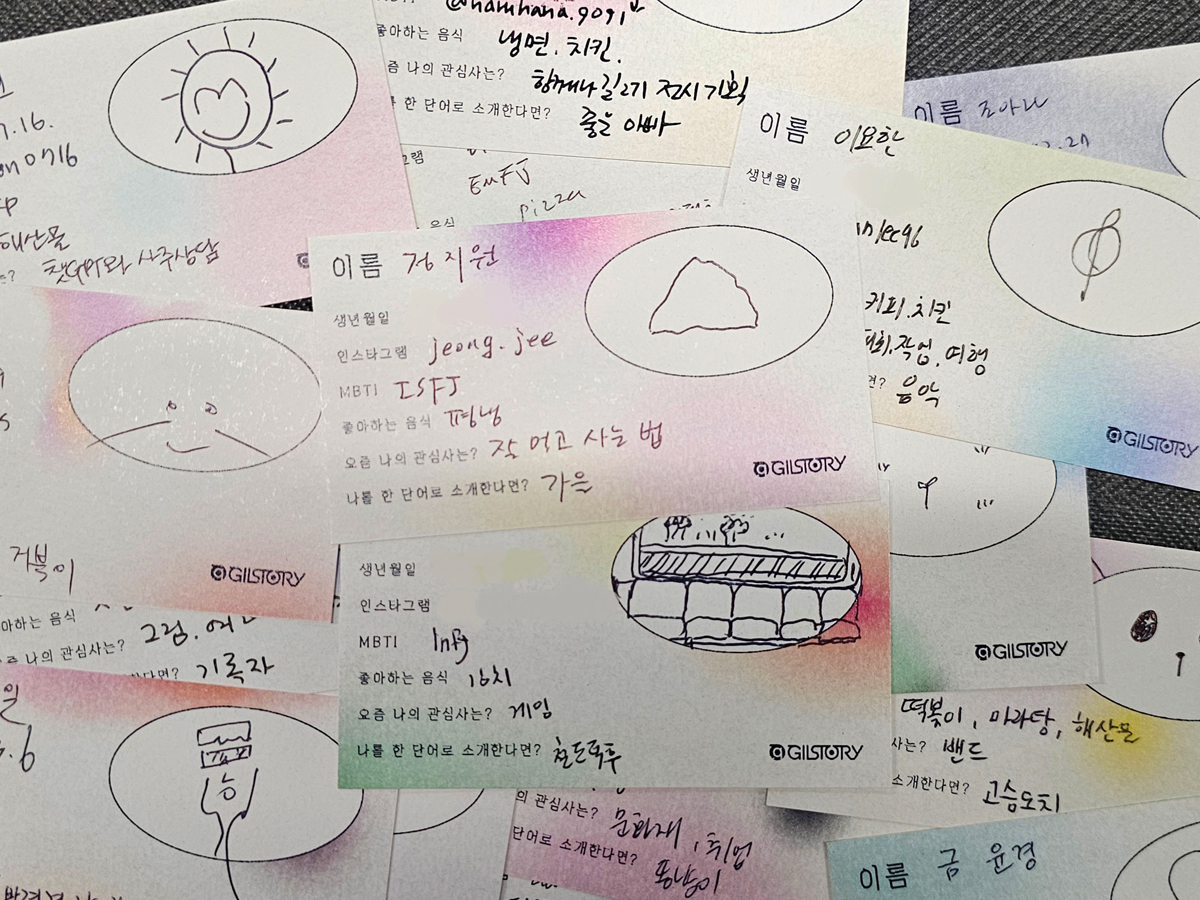 @hamhana.9091
좋아하는 음식 냉면. 치킨.
요즘 나의 관심사는? 함께나길2기 전시기획
나를 한 단어로 소개한다면? 좋은 아빠
7.16.
on0716
해산물
챗GPT와 사주상담
ENFJ
pizza
음식
이름 이요한
생년월일
lee96
커피. 치킨
작업. 여행
음악
GILSTORY
이름 조아나
이름 정지원
생년월일
인스타그램 jeong.jee
MBTI ISFJ
좋아하는 음식 평냉
요즘 나의 관심사는? 잘 먹고 사는 법
나를 한 단어로 소개한다면? 가을
GILSTORY
거북이
GILSTORY
생년월일
인스타그램
MBTI Infj
좋아하는 음식 김치
요즘 나의 관심사는? 게임
나를 한 단어로 소개한다면? 철도덕후
GILSTORY
GILSTORY
좋아하는 음식
요즘 나의 관심사는? 그림.
기록자
떡볶이, 마라탕, 해산물
사는? 밴드
소개한다면? 고슴도치
의 관심사는? 문화재, 취업
단어로 소개한다면?
이름 금윤경